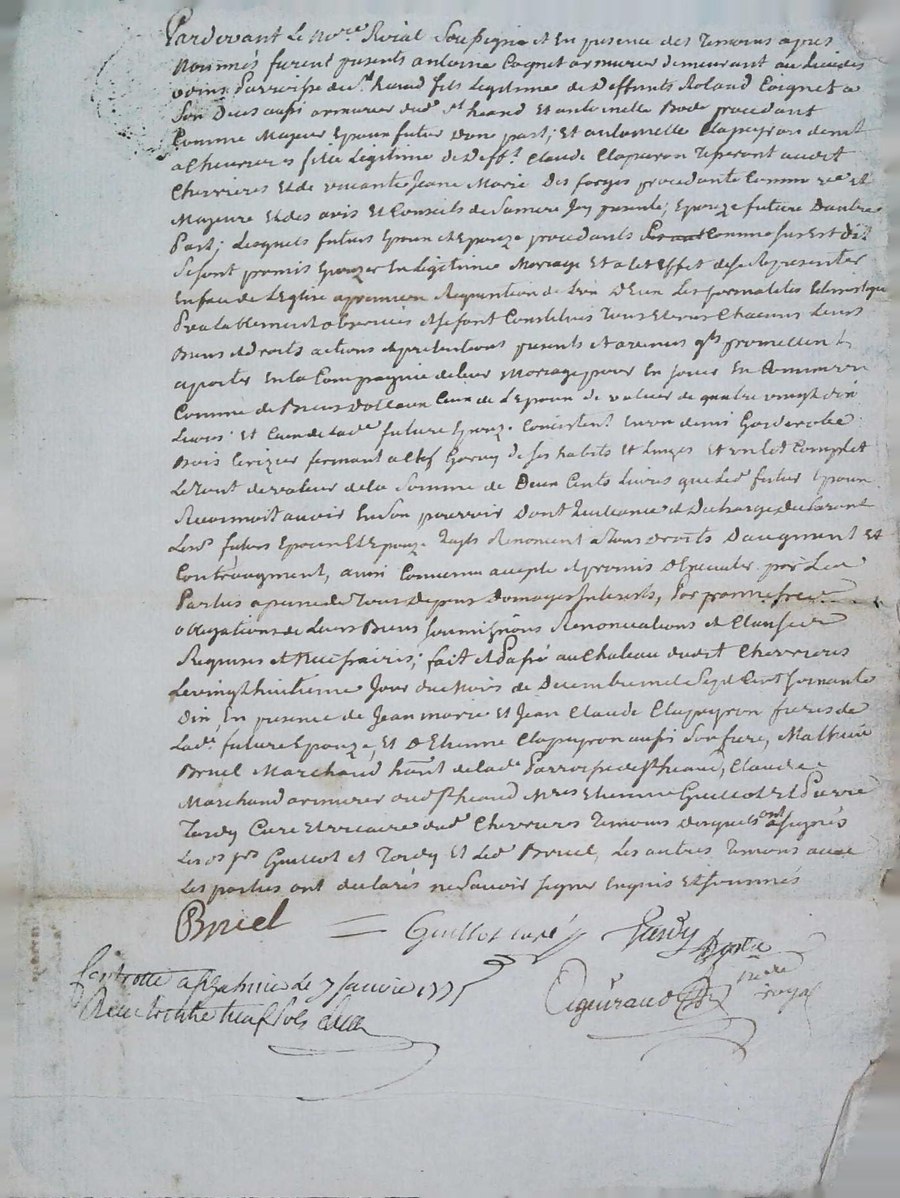 Pardevant Le nore Roial Soussigné et En presence des Temoins apres
Nommés furent presents antoine Coignet armurier demeurant au Lieu des
Parroisse du st heand fils Legitime de Deffunts Roland Coignet a
Son Deces aussi armurier aud. st heand Et antoinette procedant
Comme Majeur Epoux futur d'une part; Et antoinette Clapeyron demt
a Chevrieres fille Legitime de Defft. Claude Clapeyron audit
Cherrieres Et de vivante Jeane Marie Des farges procedante Comme
Majeure Et des avis Et Conseils de Sa mere Icy presente; Epouze future D'autre
Part; Lesquels futurs Epoux et Epouze procedants Comme sus Est dit
Se sont promis Epouzer En Legitime Mariage Et a cet Effet de se Representer
En face de L'Eglise a premiere Requisition de L'un D'Eux Les formalités
Prealablement observées et se sont Constitués Tous Et uns Chacuns Leurs
Biens et droits actions et pretentions presents et avenirs qls promettent
aporter En la Compagnie de leur Mariage pour En jouir En Commun
Comme de Biens Dotaux Ceux de L'Epoux de valeur de quatre vingt dix
Livres; Et Ceux de Lade future Epouze Concistent En un demi Garderobe
Bois Cerizier fermant a Clef Garny de ses habits Et Linges Et un Lit Complet
Le Tout de valeur de la Somme de Deux Cents Livres que Led. futur Epoux
Reconnoit avoir En Son pouvoir Dont Quittance et Decharge declarant
Lesd. futurs Epoux Et Epouze Renoncent a Tous Droits D'augment Et
Contraugment, ainsi Convenu accepté et promis D'Executer par Les
Parties a peine de Tous Depens Domages Interests, Par
obligations de Leurs Biens soumissions Renonciations et Clauses
Requises et Necessaires; fait et Passé au Chateau dudit Cherrieres
Le vingt huitieme Jour du Mois de Decembre mil Sept Cent soixante
Dix En presence de Jean marie Et Jean Claude Clapeyron freres de
Lade. future Epouze, Et D'Etienne Clapeyron aussi Son frere, Mathieu
Bruel Marchand de lade Parroisse de st heand, Claude
Marchand armurier aud st heand Mres Etienne Guillot Et Pierre
Tardy Curé Et vicaire dud. Cherrieres Temoins desquels ont signés
Les Guillot et Tardy Et Led. Bruel, Les autres Temoins avec
Les parties ont declarés ne Savoir signer Enquis Et Sommés
Bruel Guillot curé Tardy
Controllé a le 7 janvier 1771
Reçu trente neuf sols
Aguiraud nore royal